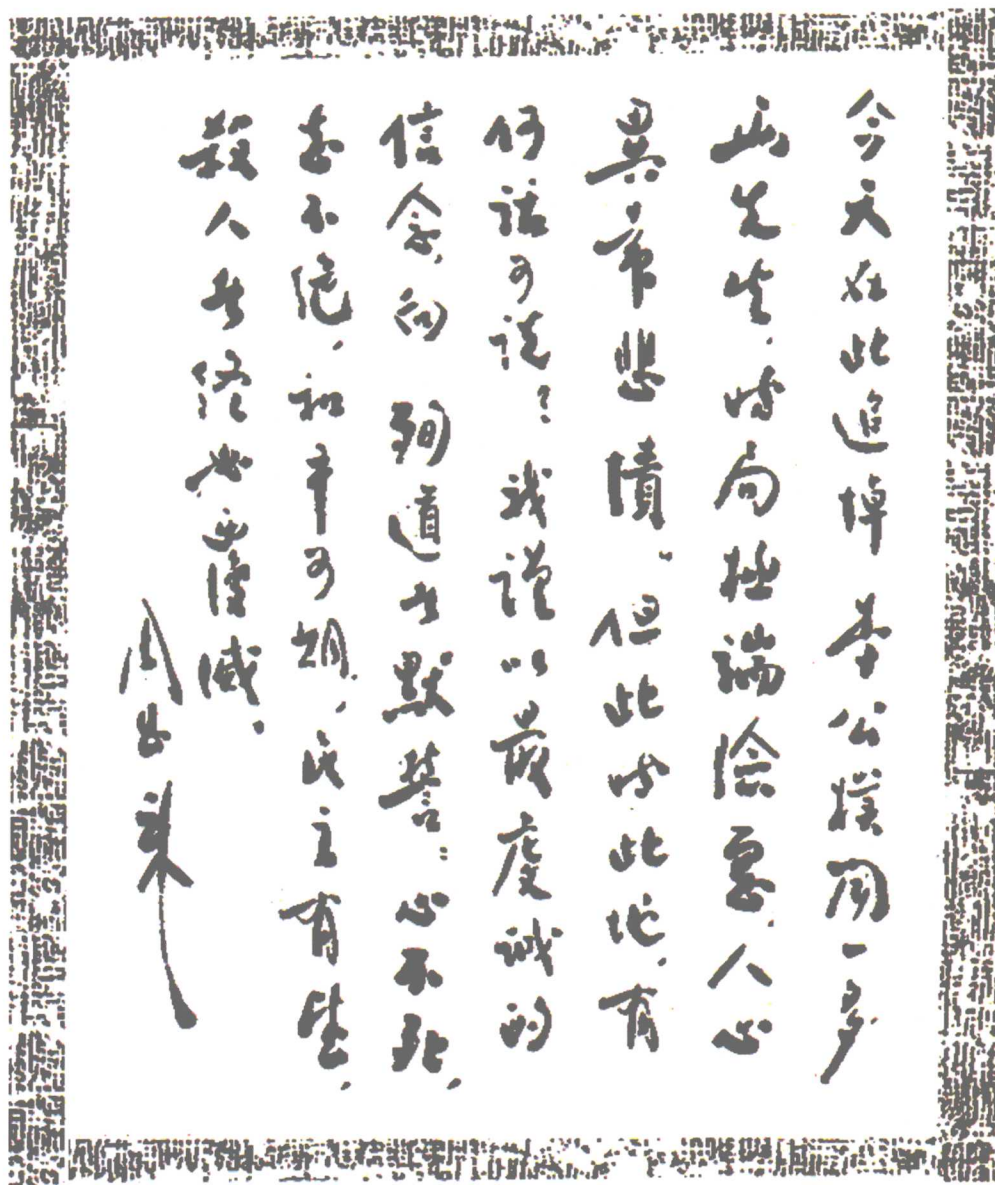 今天在此追悼李公樸闻一多
两先生,时局极端险恶,人心
異常悲憤。但此时此地,有
何话可说?我谨以最虔诚的
信念,向 殉道者默誓:心不死,
志不绝,和平可期,民主有望,
殺人者终必覆滅。
周恩来